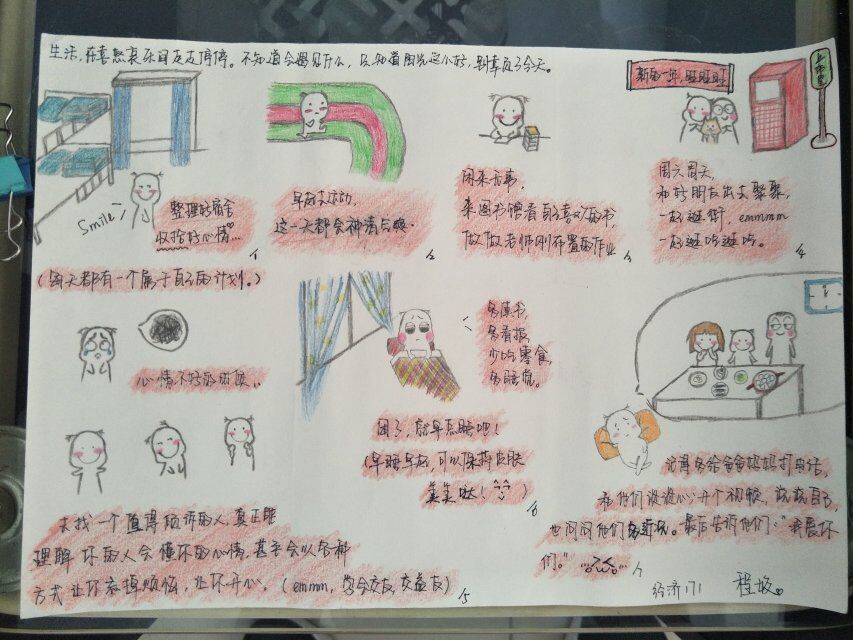 生活,在喜怒哀乐间走走停停。不知道会遇见什么,只知道阳光这么好,别辜负了今天。
新的一年,旺旺旺
Smile~
整理好宿舍
收拾好心情…
1
(每天都有一个属于自己的计划。)
早起去运动,
这一天都会神清气爽.
2
闲来无事,
来图书馆看自己喜欢的书
做做老师刚布置的作业
3
周六周天,
和好朋友出去聚聚,
一起逛街, emmmm
一起逛吃逛吃。
4
心情不好的时候,,
去找一个值得倾诉的人,真正能
理解你的人会懂你的心情,甚至会以各种
方式让你忘掉烦恼,让你开心。(emmm,学会交友,交益友)
5
多读书,
多看报,
少吃零食,
多睡觉。
困了,就早点睡吧!
(早睡早起,可以保持皮肤
美美哒!
6
记得多给爸爸妈妈打电话,
和他们谈谈心,开个视频,说说自己,
也问问他们身体状况。最后告诉他们:"我很想你
们。"
7
经济171